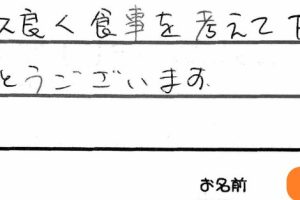 ス良く食事を考えて下
とうございます
お名前